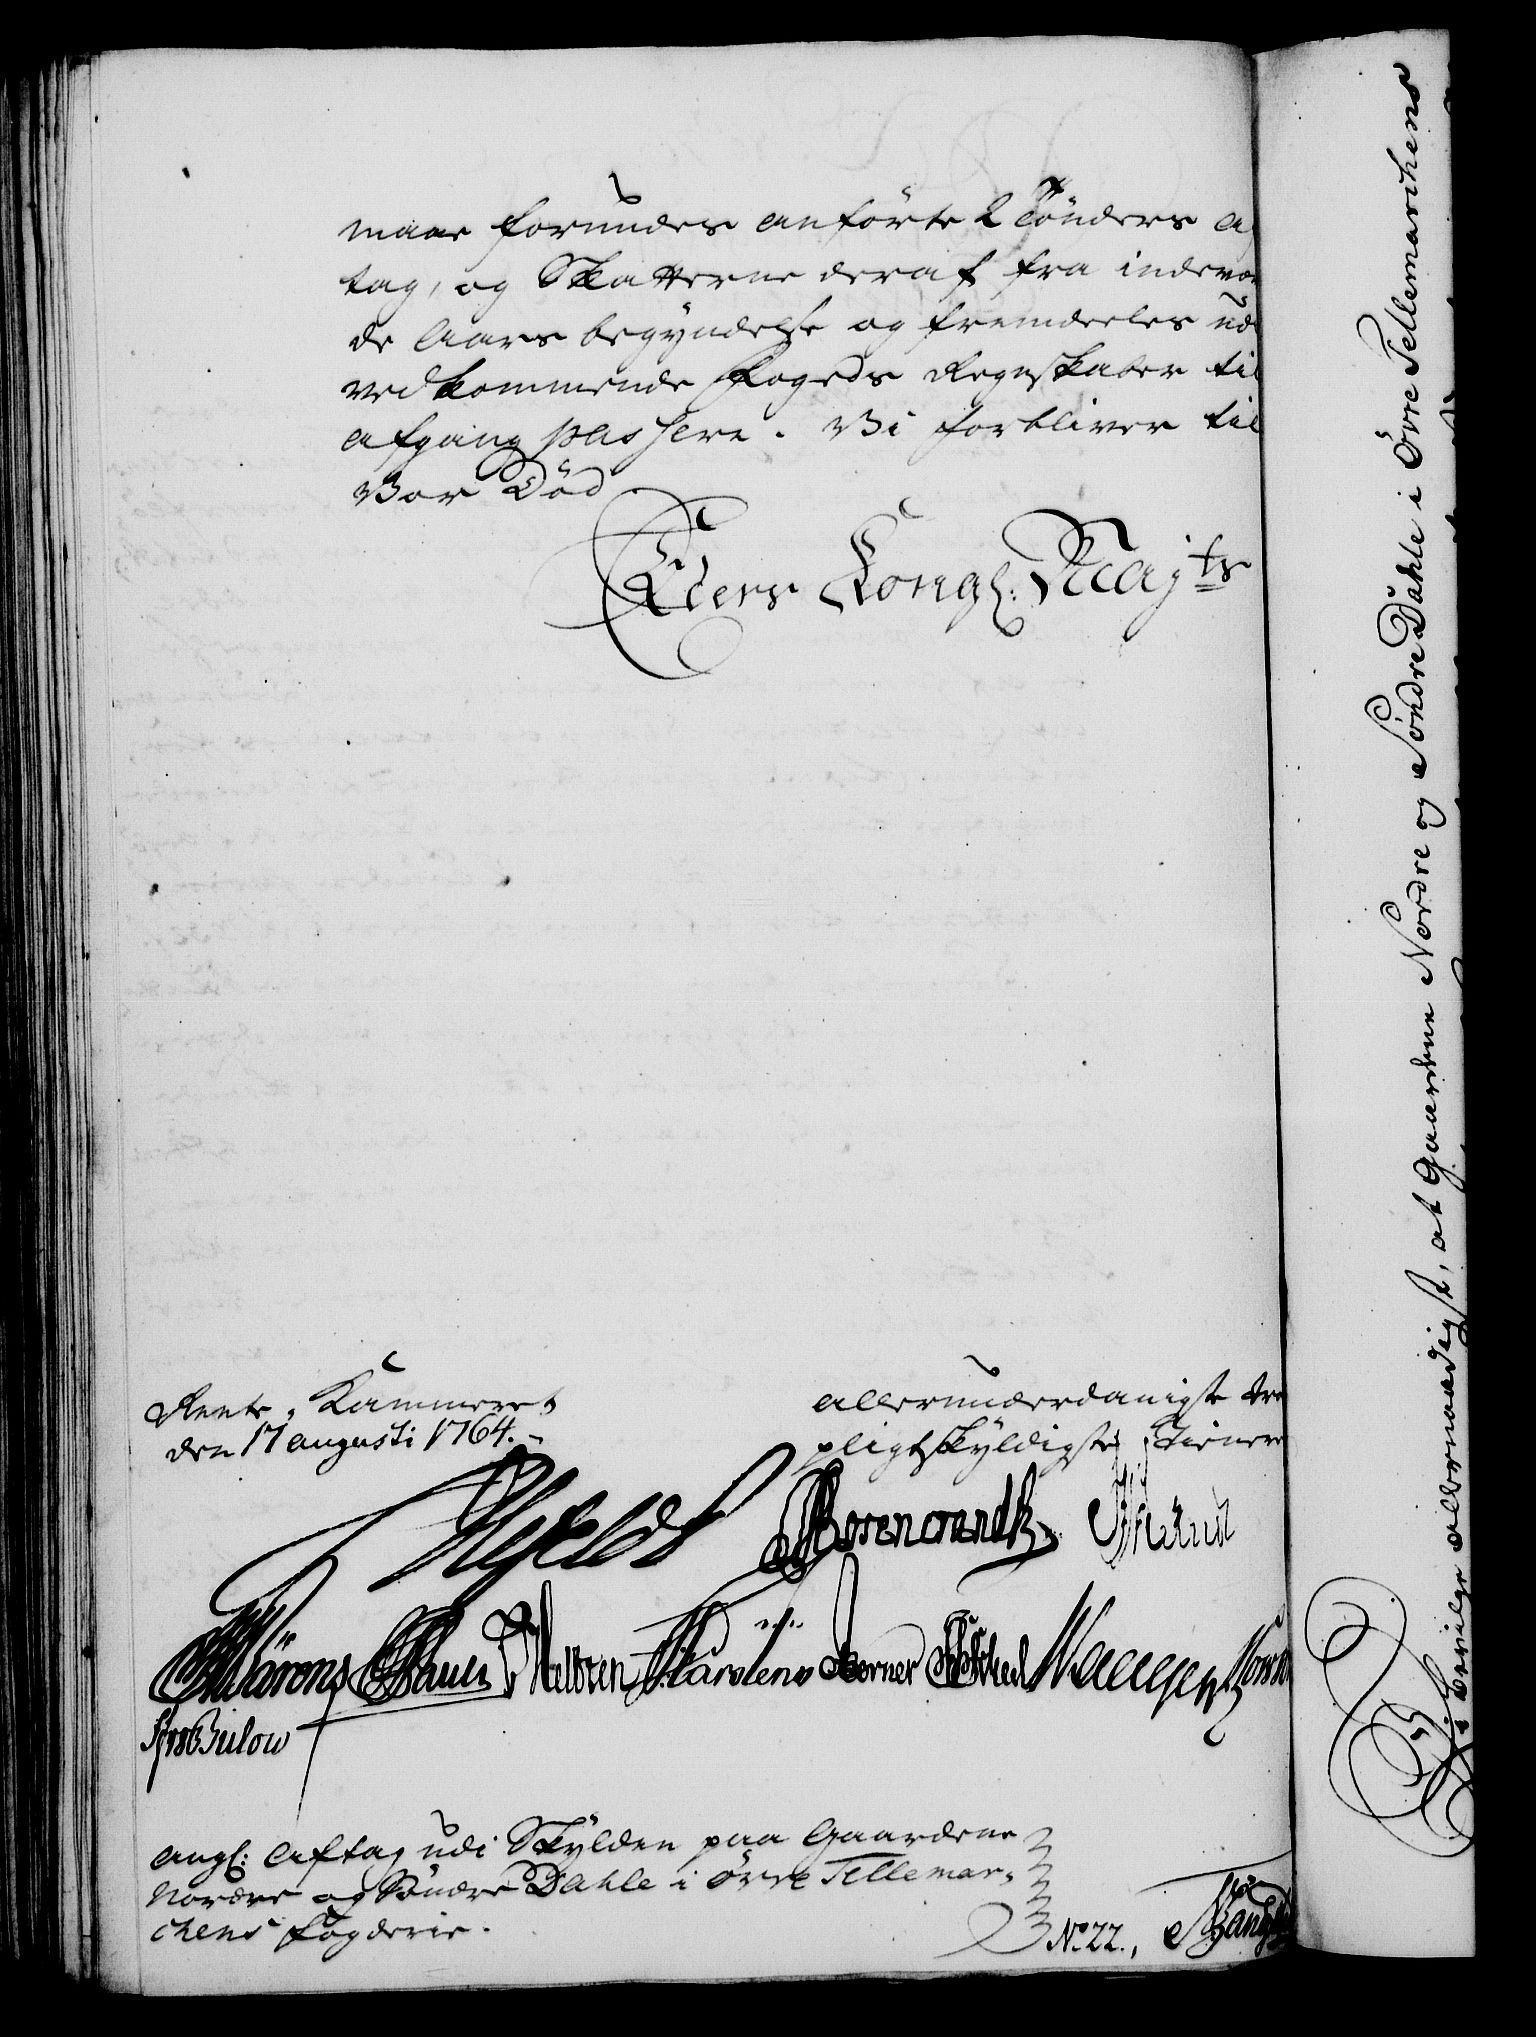 maae forundes anförte 2 Tönders a
tag, og Skatterne deraf fra indevæ
de Aars begyndelse og fremdeeles ud
vedkommende Fogeds Regnskaber til
afgang passere. Vi forbliver til
Vor Död
Eders Kongl: Majts
Rente-Kammeret
den 17 augusti 1764.
allerunderdanigste tro
pligtskyldigste Tienere
Rosencrandtz
Schult
Nelosen Karstens Berner
Bülow
angl: Aftag udi Skylden paa Gaardene
Nordre og Söndre Dahle i övre Tellemar-
chens Fogderie.
No. 22.,
Vi bevilge allernaadigst, at Gaardene Nordre og Söndre Dahle i Övre Tellemarchens